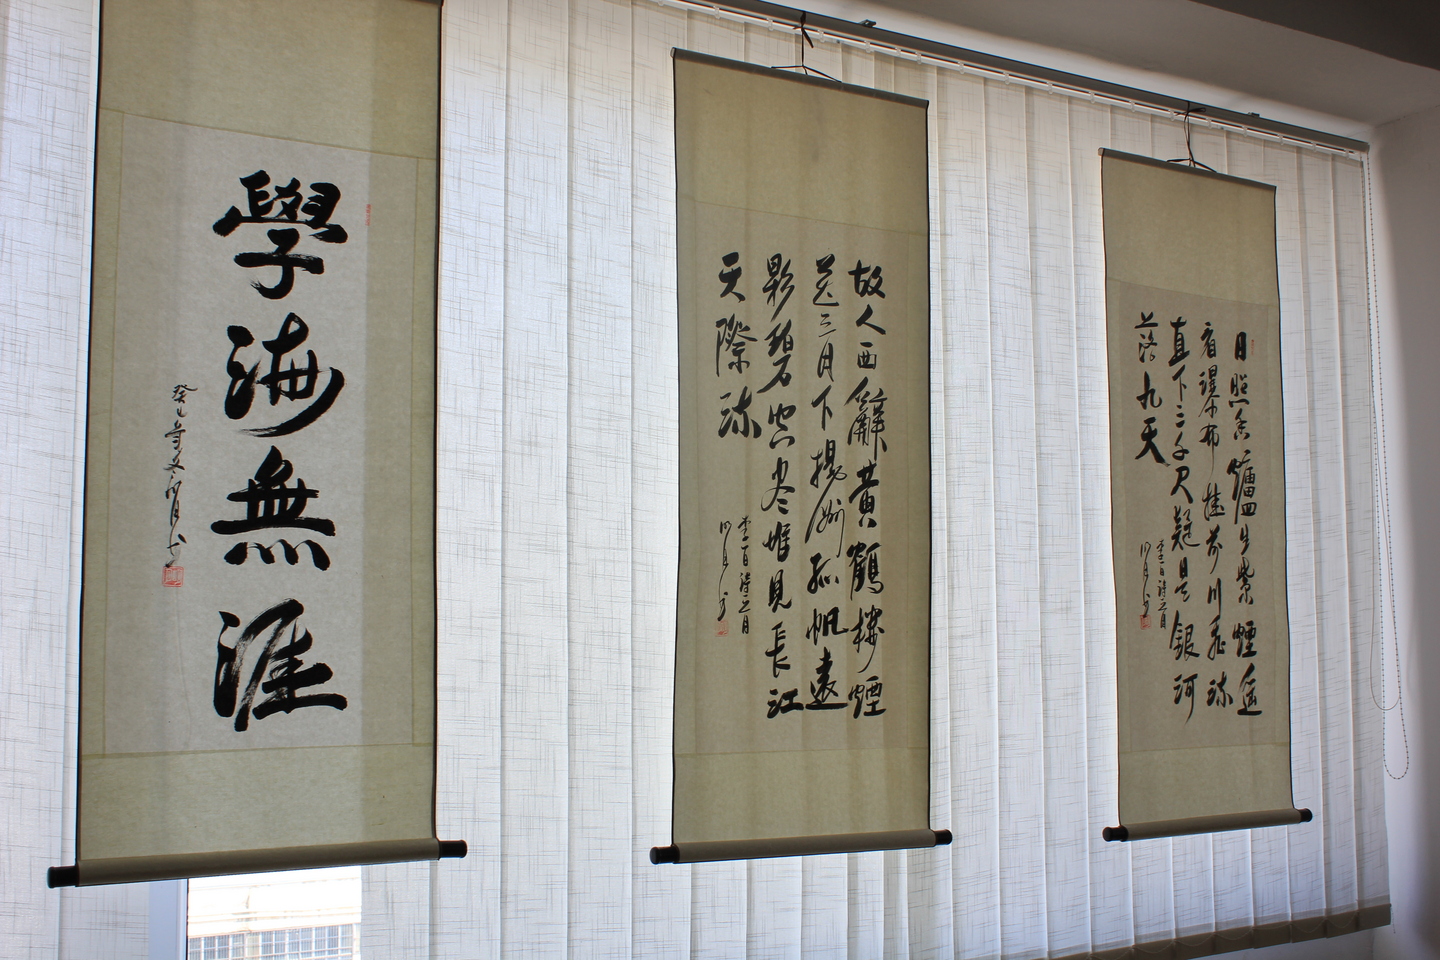 學海無涯
癸巳
故人西辭黃鶴樓煙
花三月下揚州孤帆遠
影碧空尽惟見長江
天際流
李白詩
日照香爐生紫煙遙
看瀑布掛前川飛流
直下三千尺疑是銀河
落九天
李白詩